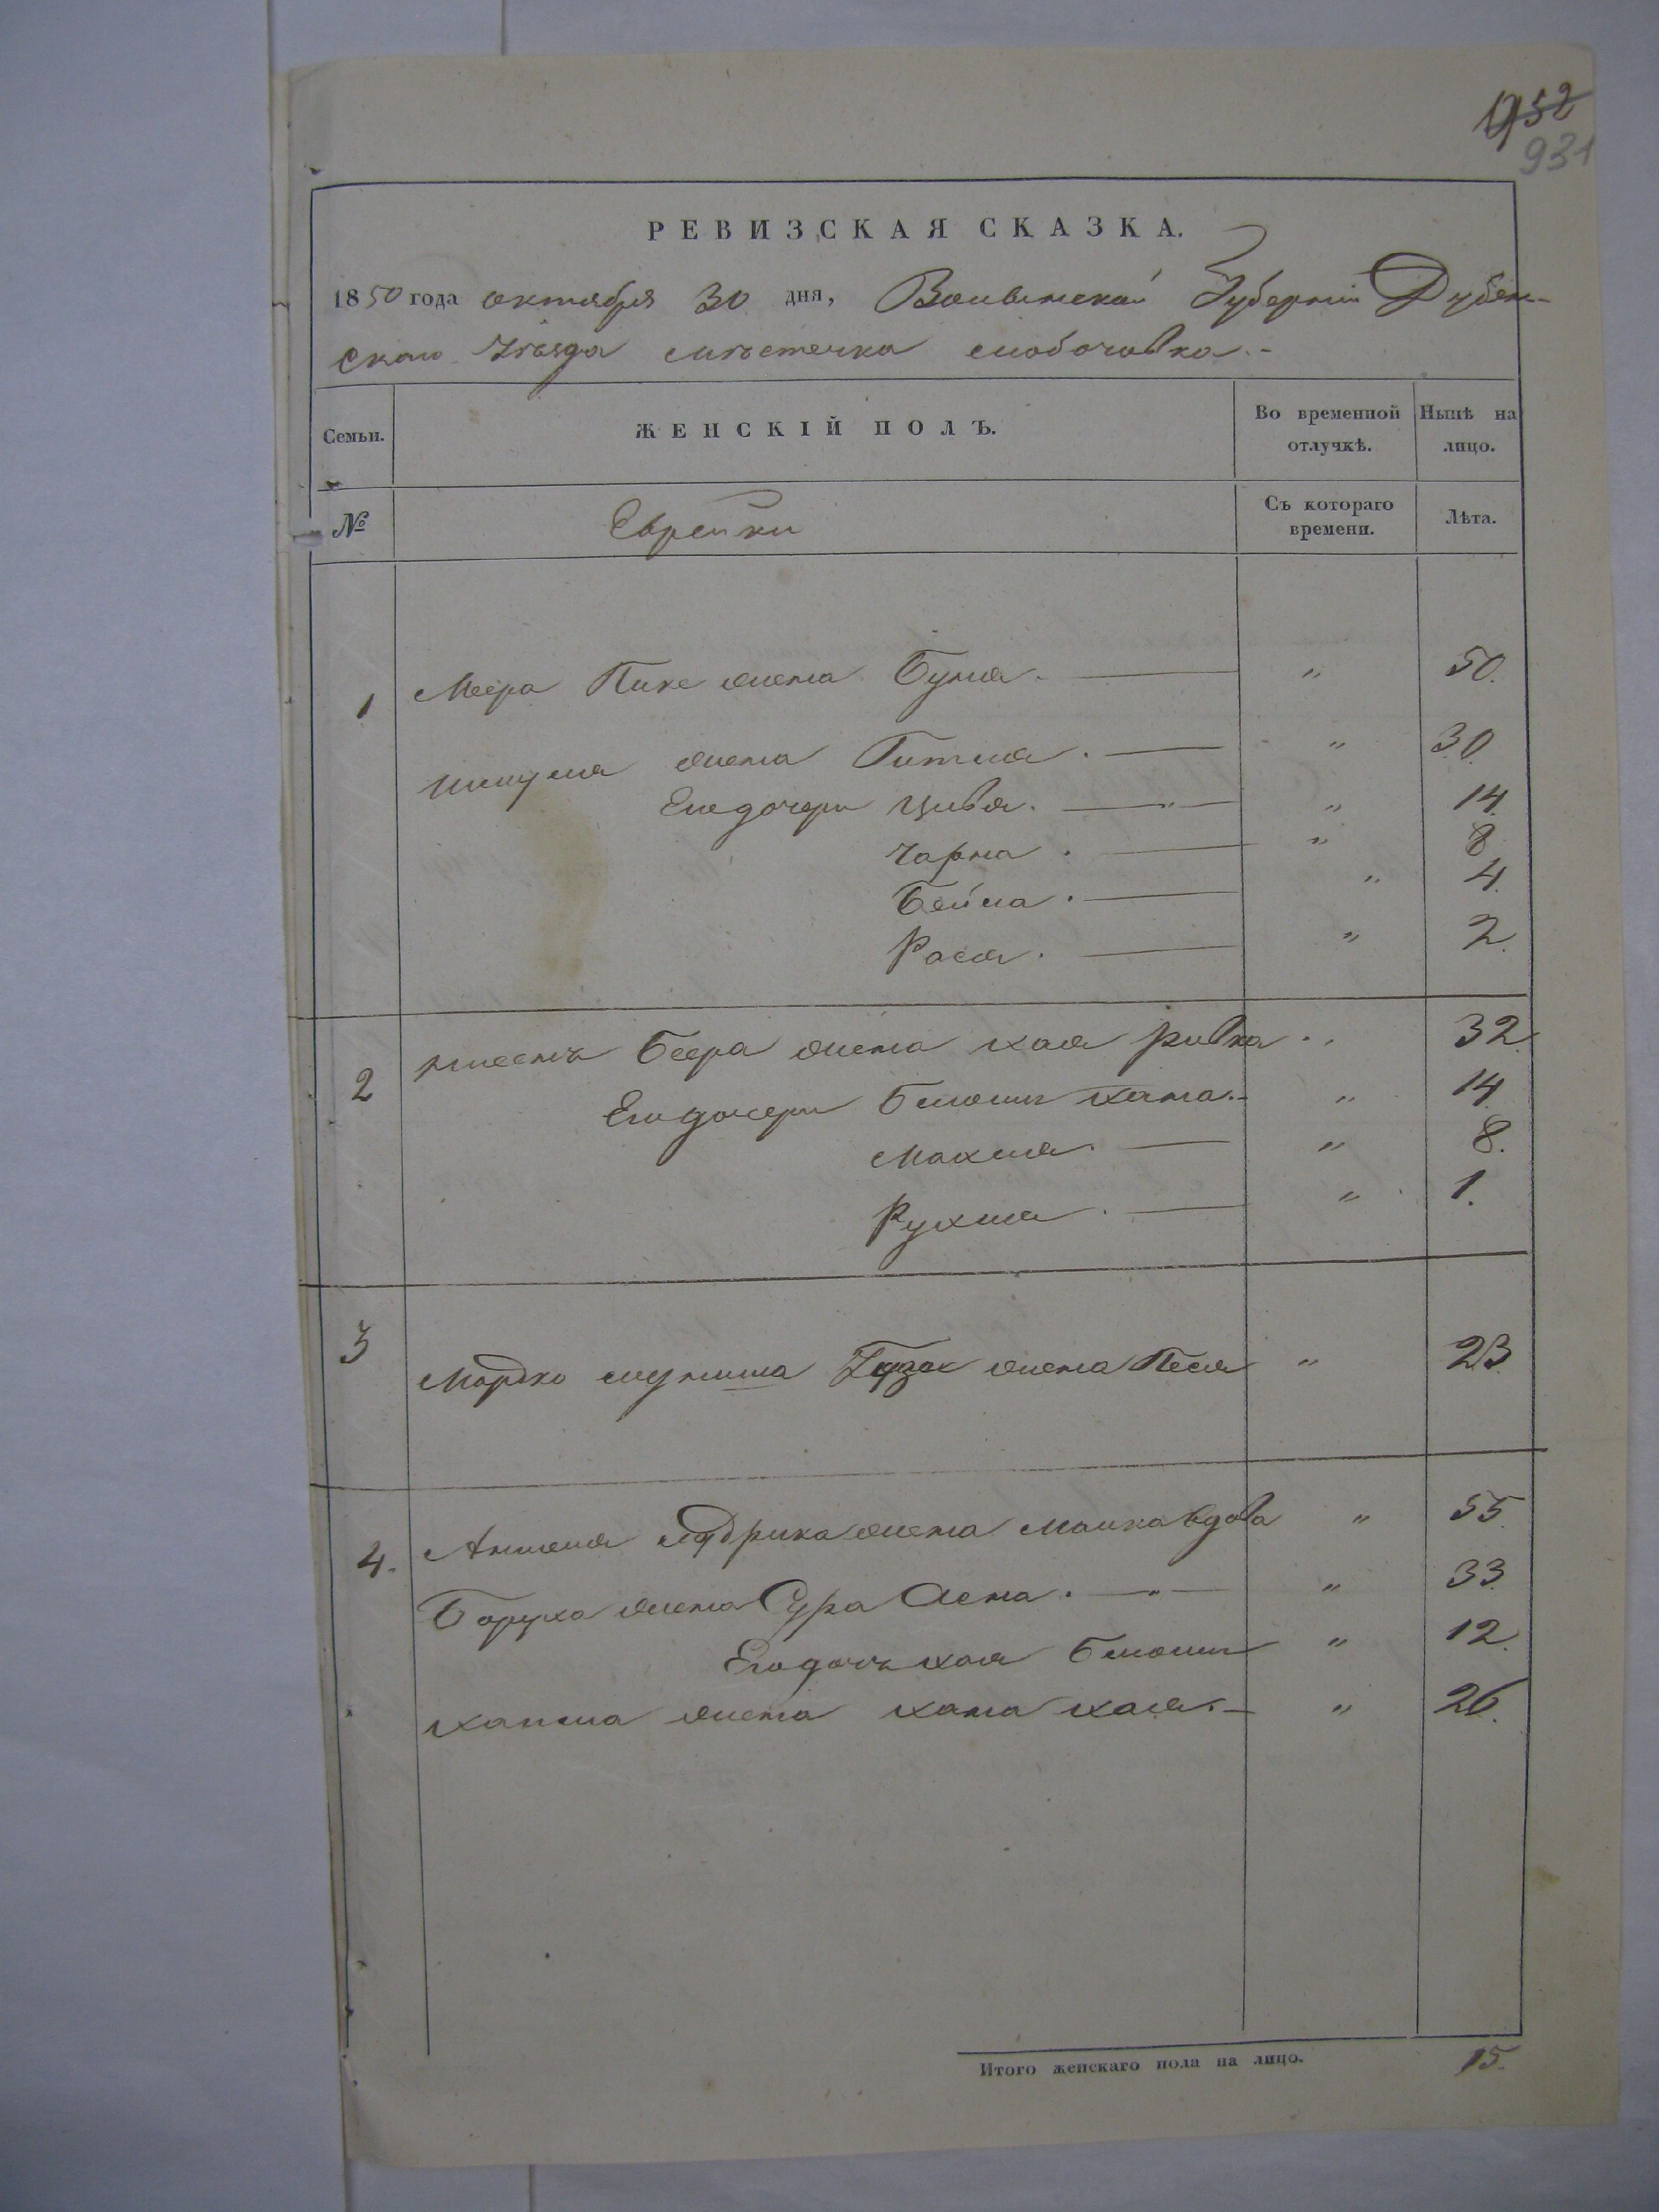 1052
931
РЕВИЗСКАЯ СКАЗКА.
1850 года октября 30 дня, Волынской Губернiи Дубен-
скаго Уѣзда мѣстечка
Семьи. ЖЕНСКІЙ ПОЛЪ. Во временной отлучкѣ. Нынѣ на лицо.
№ Еврейки Съ котораго времени. Лѣта.
1 Меера жена Бума. — „ 50.
жена Гитля. — „ 30.
Его дочери Цивья. — „ 14.
Чарна. — „ 8
Бейла. — „ 4.
Рася. — „ 2.
2 Беера жена Хая Ривка „ 32.
Его дочери Блюма Хана. - „ 14.
Махля. — „ 8.
Рухля. — „ 1.
3 Мордко жена Песя „ 23.
4. жена Малка вдова „ 55.
Боруха жена Сура — „ 33.
Его дочь Хая „ 12.
жена Хана Хая. - „ 26.
Итого женскаго пола на лицо. 15.